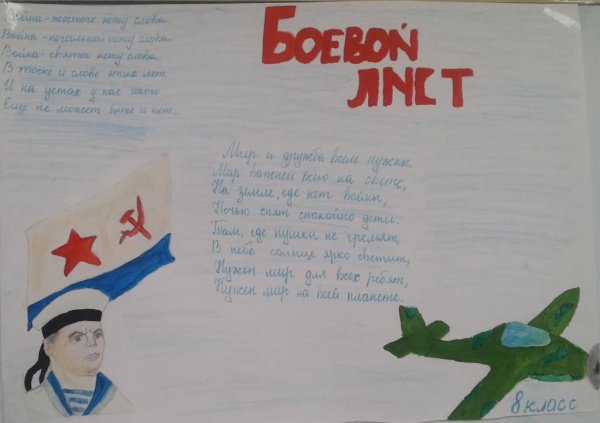 Война - жесточе нету слова.
Война - печальней нету слова.
Война - святее нету слова
В тоске и славе этих лет.
И на устах у нас иного
Ещё не может быть и нет...
БОЕВОЙ
ЛИСТ
Мир и дружба всем нужны.
Мир важней всего на свете,
На земле, где нет войны,
Ночью спят спокойно дети.
Там, где пушки не гремят,
В небе солнце ярко светит,
Нужен мир для всех ребят,
Нужен мир на всей планете.
8 класс